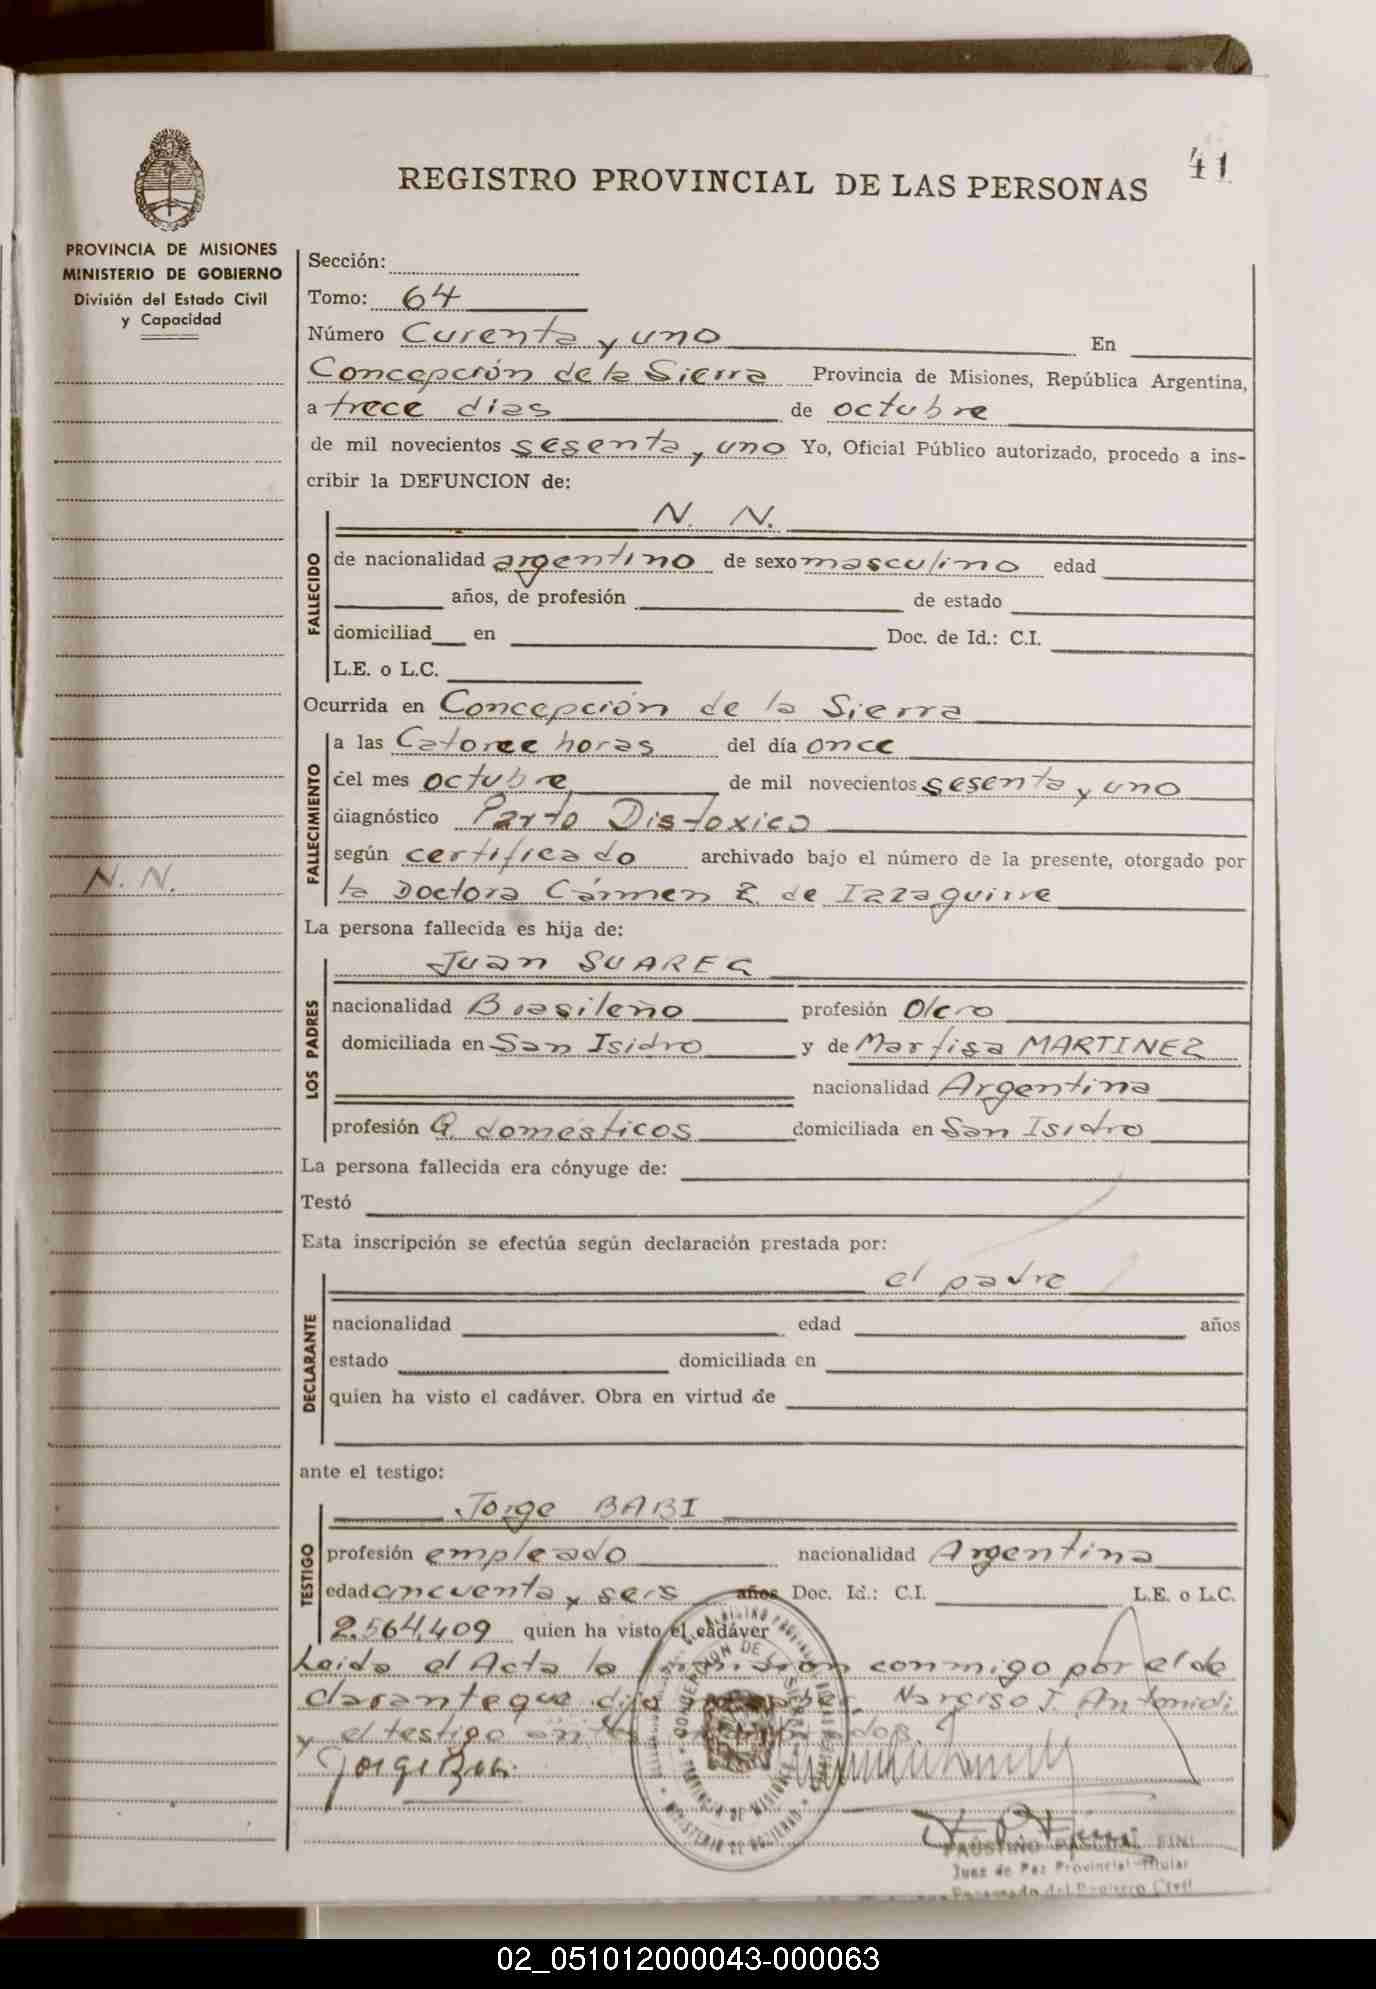 41
REGISTRO PROVINCIAL DE LAS PERSONAS
PROVINCIA DE MISIONES
MINISTERIO DE GOBIERNO
División del Estado Civil
y Capacidad
N. N.
Sección:
Tomo: 64
Número Curenta y uno En
Concepción de la Sierra Provincia de Misiones, República Argentina,
a trece dias de octubre
de mil novecientos sesenta y uno Yo, Oficial Público autorizado, procedo a ins-
cribir la DEFUNCION de:
N. N.
FALLECIDO
de nacionalidad argentino de sexo masculino edad
años, de profesión de estado
domiciliad en Doc. de Id.: C.I.
L.E. o L.C.
Ocurrida en Concepción de la Sierra
FALLECIMIENTO
a las Catorce horas del día once
del mes octubre de mil novecientos sesenta y uno
diagnóstico Parto Distoxico
según certificado archivado bajo el número de la presente, otorgado por
la Doctora Cármen Z. de Izzaguirre
La persona fallecida es hija de:
LOS PADRES
Juan SUAREZ
nacionalidad Brasileño profesión Olero
domiciliada en San Isidro y de Marfisa MARTINEZ
nacionalidad Argentina
profesión Q. domésticos domiciliada en San Isidro
La persona fallecida era cónyuge de:
Testó
Esta inscripción se efectúa según declaración prestada por:
DECLARANTE
el padre
nacionalidad edad años
estado domiciliada en
quien ha visto el cadáver. Obra en virtud de
ante el testigo:
TESTIGO
Jorge BABI
profesión empleado nacionalidad Argentina
edad cincuenta y seis años Doc. Id.: C.I. L.E. o L.C.
2.564.409 quien ha visto el cadáver
Leida el Acta la conmigo por el de
clarante que dijo Narciso J. Antonidi
y el testigo
Jorge Babi
CONCEPCION DE LA SIERRA
PROVINCIA DE MISIONES
MINISTERIO DE GOBIERNO
FAUSTINO PASCUAL FINI
Juez de Paz Provincial Titular
Encargado del Registro Civil
02_051012000043-000063